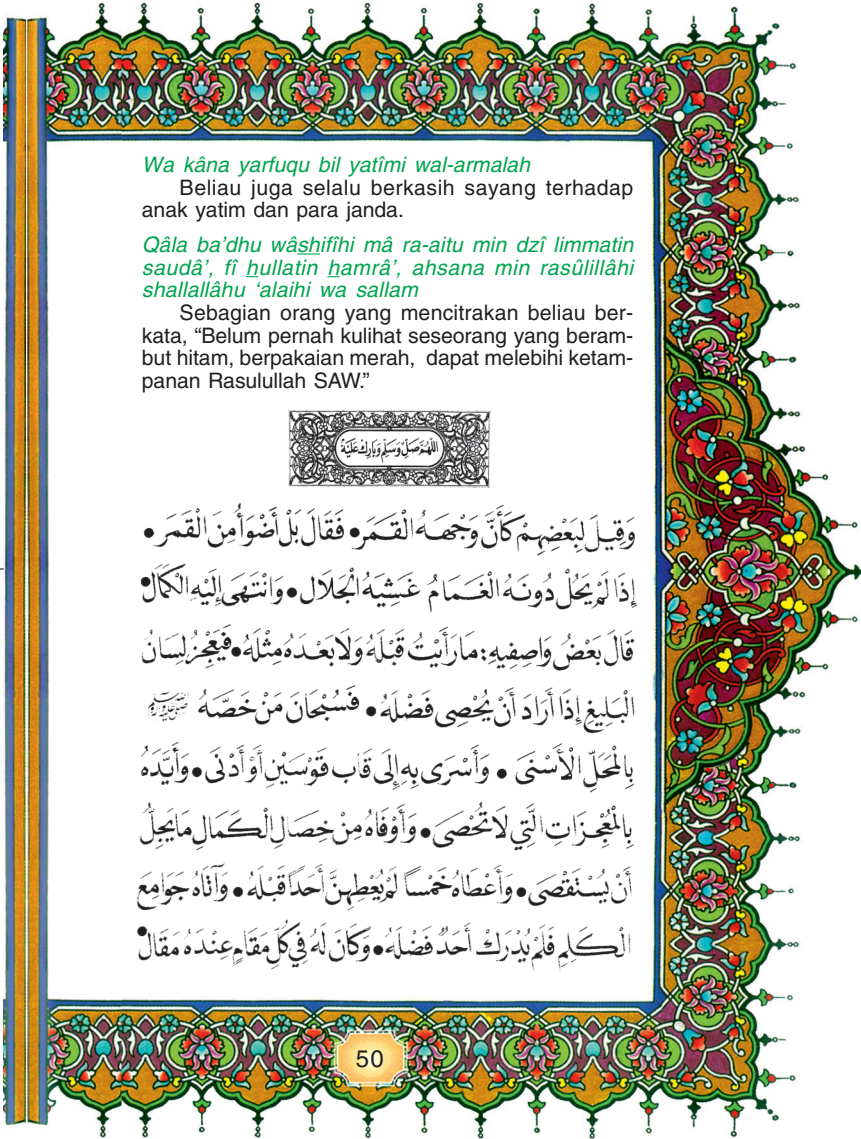 Wa kâna yarfuqu bil yatîmi wal-armalah
Beliau juga selalu berkasih sayang terhadap
anak yatim dan para janda.
Qâla ba’dhu wâshifîhi mâ ra-aitu min dzî limmatin
saudâ’, fî hullatin hamrâ’, ahsana min rasûlillâhi
shallallâhu ‘alaihi wa sallam
Sebagian orang yang mencitrakan beliau ber-
kata, “Belum pernah kulihat seseorang yang beram-
but hitam, berpakaian merah, dapat melebihi ketam-
panan Rasulullah SAW.”
اللهُمَّ صَلِّ وَسَلِّمْ وَبَارِكْ عَلَيْهِ
وَقِيلَ لِبَعْضِهِمْ كَأَنَّ وَجْهَهُ الْقَمَر • فَقَالَ بَلْ أَضْوَأُ مِنَ الْقَمَر •
إِذَا لَمْ يَحُلْ دُونَهُ الْغَمَامُ غَشِيَهُ الْجَلَال • وَانْتَهَى إِلَيْهِ الْكَمَالُ •
قَالَ بَعْضُ وَاصِفِيهِ: مَا رَأَيْتُ قَبْلَهُ وَلَا بَعْدَهُ مِثْلَهُ • فَيَعْجِزُ لِسَانُ
الْبَلِيغِ إِذَا أَرَادَ أَنْ يُحْصِى فَضْلَهُ • فَسُبْحَانَ مَنْ خَصَّهُ ﷺ
بِالْمَحَلِّ الْأَسْنَى • وَأَسْرَى بِهِ إِلَى قَابِ قَوْسَيْنِ أَوْ أَدْنَى • وَأَيَّدَهُ
بِالْمُعْجِزَاتِ الَّتِي لَا تُحْصَى • وَأَوْفَاهُ مِنْ خِصَالِ الْكَمَالِ مَا يَجِلُّ
أَنْ يُسْتَقْصَى • وَأَعْطَاهُ خَمْساً لَمْ يُعْطِهِنَّ أَحَداً قَبْلَهُ • وَآتَاهُ جَوَامِعَ
الْكَلِمِ فَلَمْ يُدْرِكْ أَحَدٌ فَضْلَهُ • وَكَانَ لَهُ فِي كُلِّ مَقَامٍ عِنْدَهُ مَقَالٌ •
50